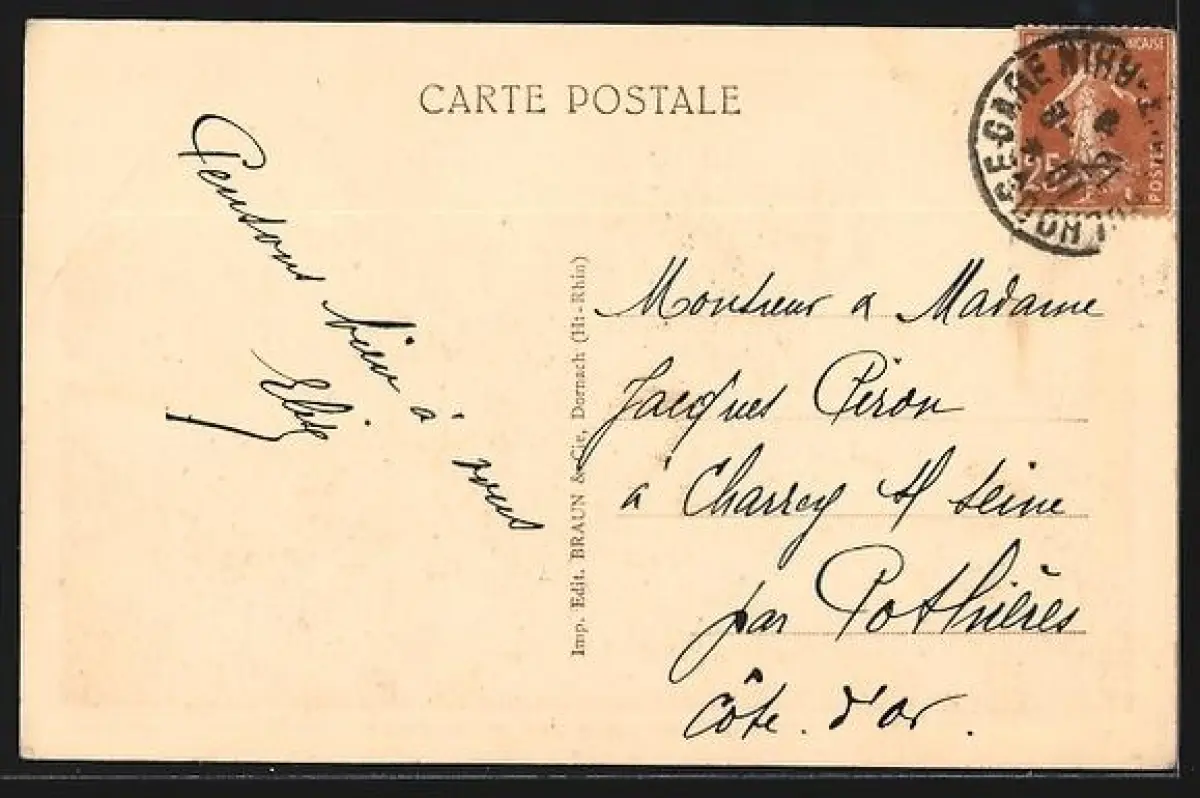 CARTE POSTALE
Pensons bien à vous
Elise
Imp. Edit. BRAUN & Cie, Dornach (Ht-Rhin)
Monsieur & Madame
Jacques Piron
à Charrey s/ Seine
par Pothières
Côte. d'or.
MULHOUSE-GARE Ht RHIN
25
POSTES